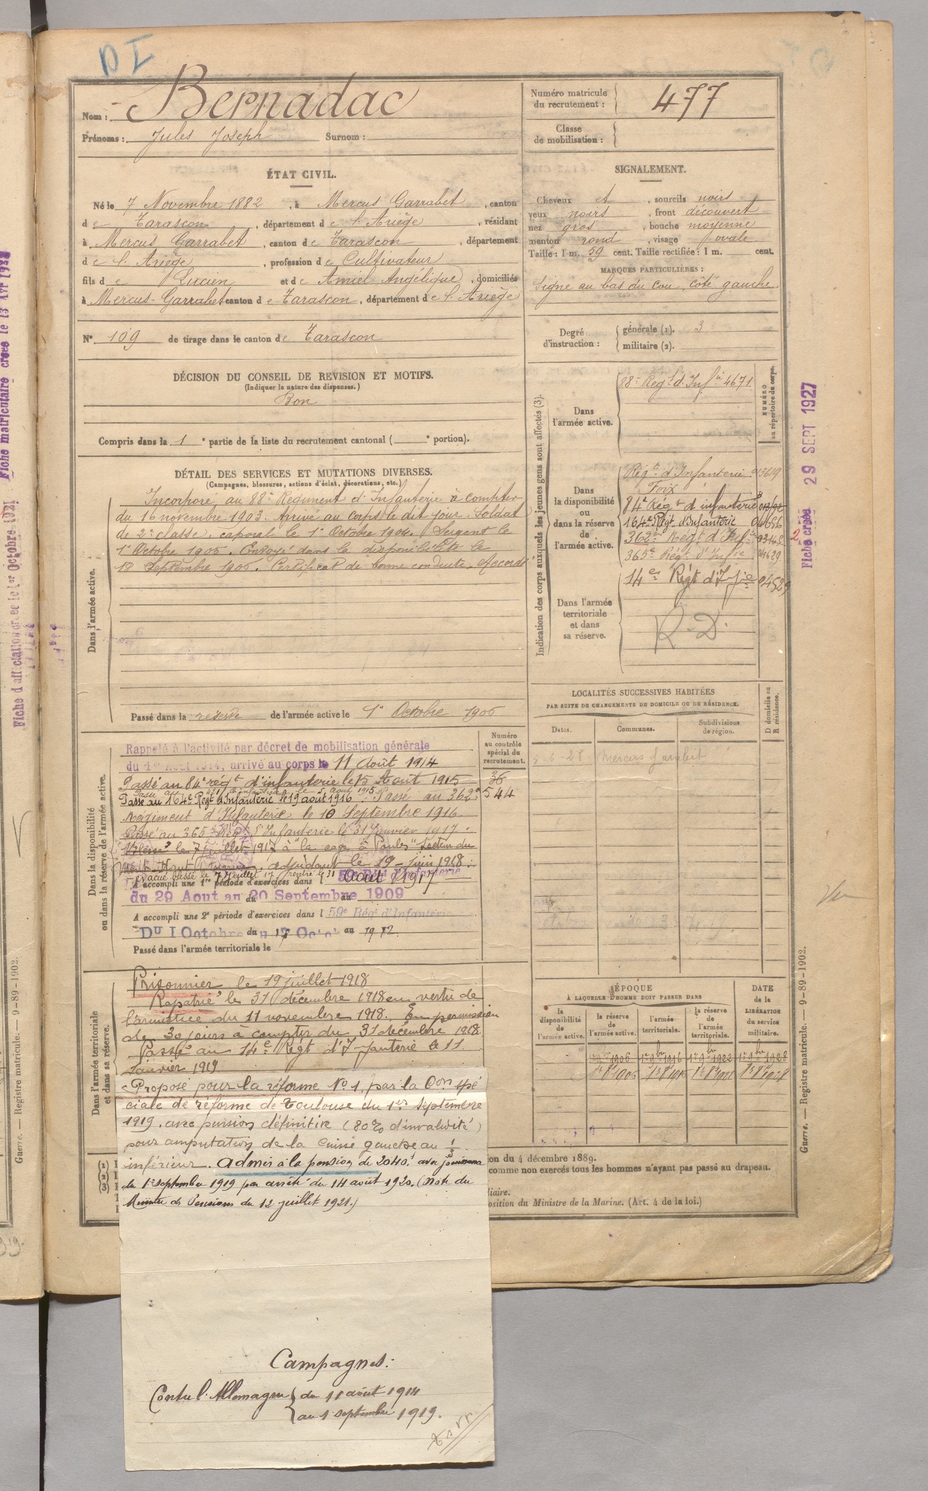 DI
Nom : Bernadac
Prénoms : Jules Joseph Surnom :
Numéro matricule du recrutement : 477
Classe de mobilisation :
ÉTAT CIVIL.
Né le 7 Novembre 1882, à Mercus Garrabet, canton
de Tarascon, département de l'Ariège, résidant
à Mercus Garrabet, canton de Tarascon, département
de l'Ariège, profession de Cultivateur
fils de Lucien et de Amiel Angélique, domiciliés
à Mercus-Garrabet canton de Tarascon, département de l'Ariège
N° 109 de tirage dans le canton de Tarascon
SIGNALEMENT.
Cheveux et, sourcils noirs
yeux noirs, front découvert
nez gros, bouche moyenne
menton rond, visage ovale
Taille : 1 m. 59 cent. Taille rectifiée : 1 m. cent.
MARQUES PARTICULIÈRES :
Signe au bas du cou, côté gauche
Degré d'instruction : générale (1). 3
militaire (2).
DÉCISION DU CONSEIL DE REVISION ET MOTIFS.
(Indiquer la nature des dispenses.)
Bon
Compris dans la 1e partie de la liste du recrutement cantonal ( e portion).
DÉTAIL DES SERVICES ET MUTATIONS DIVERSES.
(Campagnes, blessures, actions d'éclat, décorations, etc.)
Dans l'armée active.
Incorporé au 88e Régiment d'Infanterie à compter
du 16 novembre 1903. Arrivé au corps le dit jour. Soldat
de 2e classe, caporal le 1er Octobre 1904. Sergent le
1er Octobre 1905. Envoyé dans la disponibilité le
18 Septembre 1906. Certificat de bonne conduite "Accordé"
Passé dans la réserve de l'armée active le 1er Octobre 1906
Indication des corps auxquels les jeunes gens sont affectés (3).
NUMÉRO au répertoire du corps.
Dans l'armée active.
88e Régt d'Infie 4671
Dans la disponibilité ou dans la réserve de l'armée active.
Régt d'Infanterie
Foix
84e Régt d'infanterie
164e Régt d'Infanterie
362e Régt d'Infie
365e Régt d'Infie
14e Régt d'Infie
Dans l'armée territoriale et dans sa réserve.
R.D.
Fiche créée 29 SEPT 1927
LOCALITÉS SUCCESSIVES HABITÉES
PAR SUITE DE CHANGEMENTS DE DOMICILE OU DE RÉSIDENCE.
Dates. Communes. Subdivisions de région. D domicile ou R résidence.
Mercus Garrabet
Dans la disponibilité ou dans la réserve de l'armée active.
Numéro au contrôle spécial du recrutement.
Rappelé à l'activité par décret de mobilisation générale
du 1er Août 1914, arrivé au corps le 11 Août 1914
Passé au 84e régt d'infanterie le 15 Août 1915
36
Passé au 164e Régt d'Infanterie le 19 août 1916. Passé au 362e
544
Régiment d'Infanterie le 10 Septembre 1916.
Passé au 365e Régt d'Infanterie le 31 Janvier 1917.
A accompli une 1re période d'exercices dans l
du 29 Aout au 20 Septembre 1909
A accompli une 2e période d'exercices dans l 59e Régt d'Infanterie
Du 1 Octobre au 17 Octo. 1912
Passé dans l'armée territoriale le
Dans l'armée territoriale et dans sa réserve.
Prisonnier le 19 juillet 1918
Rapatrié le 31 décembre 1918 en vertu de
l'armistice du 11 novembre 1918. En permission
de 30 jours à compter du 31 décembre 1918
Passé au 14e Régt d'Infanterie le 11
Janvier 1919
Proposé pour la réforme N° 1 par la Con spé
ciale de réforme de Toulouse du 1er septembre
1919. avec pension définitive (80% d'invalidité)
pour amputation de la cuisse gauche au 1/3
inférieur. Admis à la pension de 2040f avec jouissance
du 1er septembre 1919 par arrêté du 14 août 1920. (Note du
Ministre des Pensions du 12 juillet 1921.)
ÉPOQUE
À LAQUELLE L'HOMME DOIT PASSER DANS
la disponibilité de l'armée active. la réserve de l'armée active. l'armée territoriale. la réserve de l'armée territoriale.
DATE de la LIBÉRATION du service militaire.
on du 4 décembre 1889.
comme non exercés tous les hommes n'ayant pas passé au drapeau.
liaire.
osition du Ministre de la Marine. (Art. 4 de la loi.)
Guerre. — Registre matricule. — 9-89-1902.
Campagnes :
Contre l'Allemagne du 11 août 1914
au 1 septembre 1919.
Guerre. — Registre matricule. — 9-89-1902.